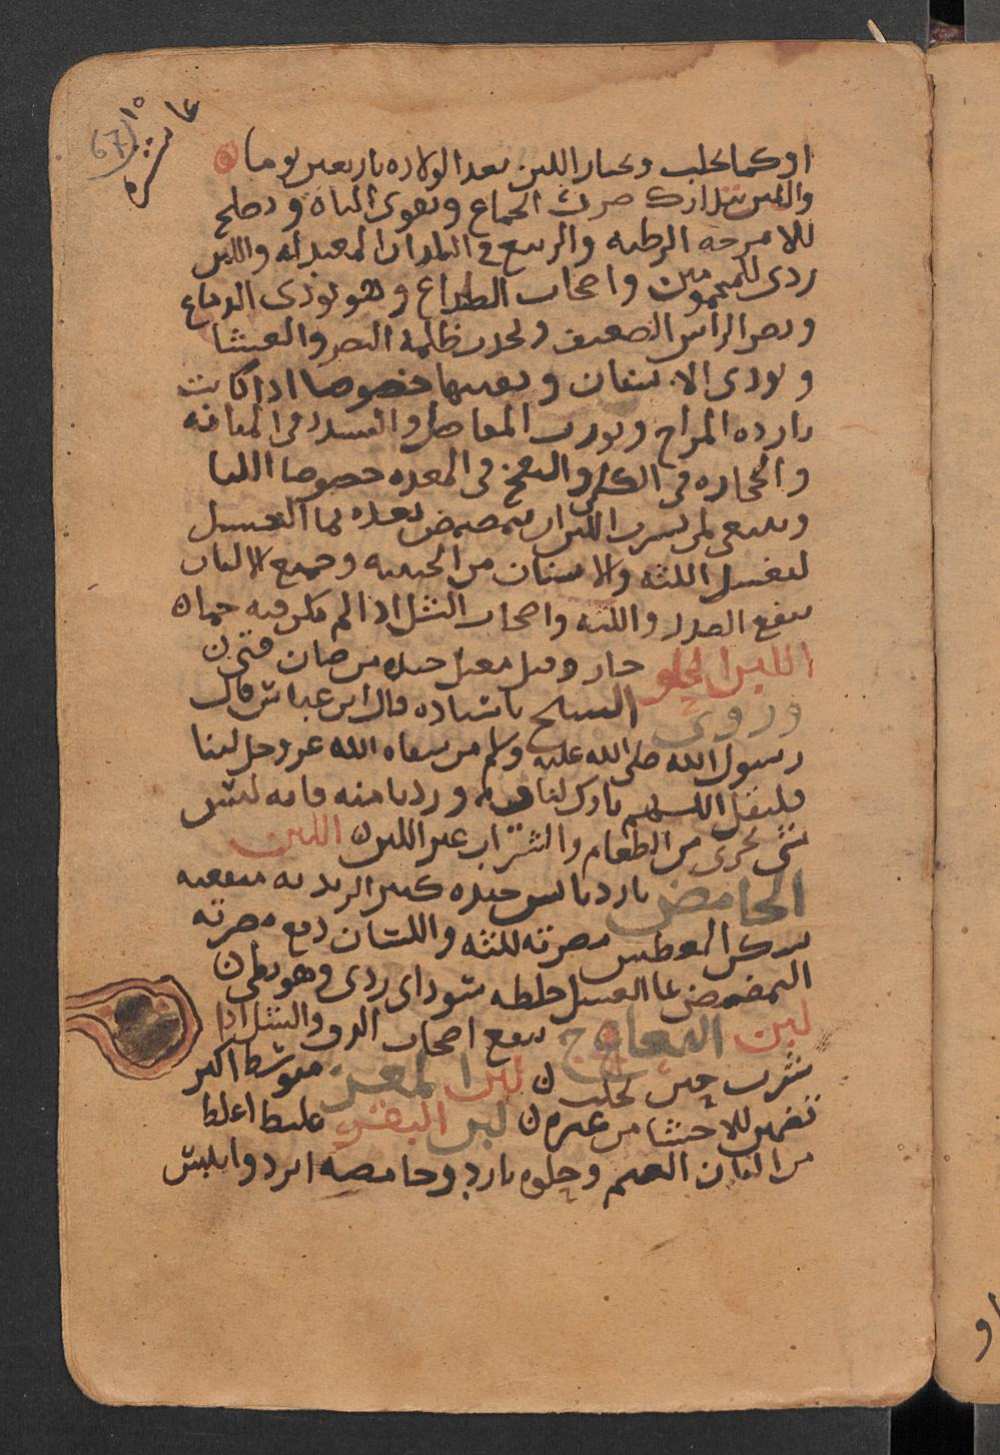 عاشره
10
(67)
او كما يحلب ويختار اللبن بعد الولاده باربعين يوما
واللبن يتدارك ضرر الجماع ويقوى الباه ويصلح
للامزجه الرطبه والربيع فى البلدان المعتدله واللبن
ردى للمحمومين واصحاب الصداع وهو يوذى الدماغ
ويضر الراس الضعيف ويحدث ظلمة البصر والعشا
ويوذى الاسنان ويعيبها خصوصا اذا كانت
بارده المزاج ويورث المفاصل والسدد فى المثانه
والحجاره فى الكلى والنفخ فى المعده خصوصا اللبا
وينبغى لمن يشرب اللبن ان يتمضمض بعده بما العسل
ليغسل اللثه والاسنان من الجبنيه وجميع الالبان
ينفع الصدر والليه واصحاب السل اذا لم يكن فيه حماه
اللبن الحلو حار وقيل معتدل جيده من ضان فتى ن
وروى باسناده قال ابن عباس قال
رسول الله صلى الله عليه وسلم من سقاه الله عز وجل لبنا
فليقل اللهم بارك لنا فيه وزدنا منه فانه ليس
شى يجزى من الطعام والشراب غير اللبن ن اللبن
الحامض بارد يابس جيده كثير الزبد به منفعته
يسكن العطش مضرته للثه والاسنان دفع مضرته
التمضمض بما العسل خلطه سوداى ردى وهو بطى ن
لبن النعاج ينفع اصحاب الدق والسل اذا
شرب حين يحلب ن لبن المعز متوسط اكثر
تضمر للاحشا من غيره ن لبن البقر غليظ اغلظ
من البان الغنم وحلوه بارد وحامضه ابرد وايبس